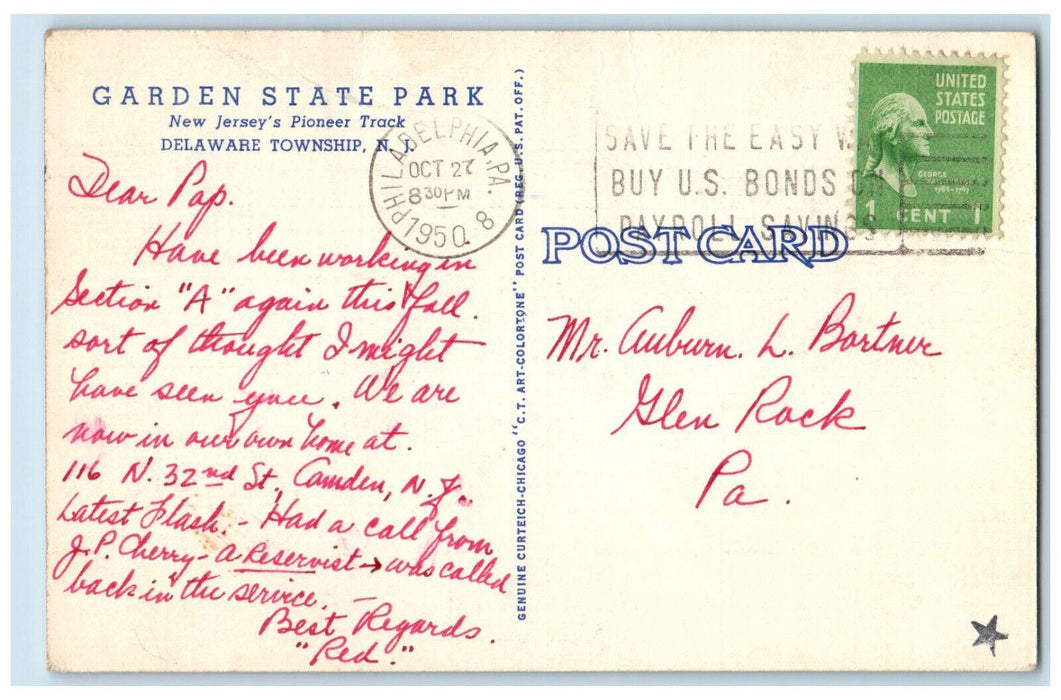 GARDEN STATE PARK
New Jersey's Pioneer Track
DELAWARE TOWNSHIP, N. J.
Dear Pap.
Have been working in
Section "A" again this fall.
sort of thought I might
have seen you. We are
now in our own home at.
116 N. 32nd St, Camden, N. J.
Latest Flash. - Had a call from
J. P. Cherry - a Reservist → was called
back in the service. -
Best Regards.
"Red."
PHILADELPHIA, PA. 8
OCT 27
8 30 PM
1950
GENUINE CURTEICH-CHICAGO "C.T. ART-COLORTONE" POST CARD (REG. U.S. PAT. OFF.)
SAVE THE EASY WAY
BUY U.S. BONDS ON
PAYROLL SAVINGS
UNITED
STATES
POSTAGE
GEORGE
WASHINGTON
1789-1797
1 CENT 1
POST CARD
Mr. Auburn. L. Bortner
Glen Rock
Pa.